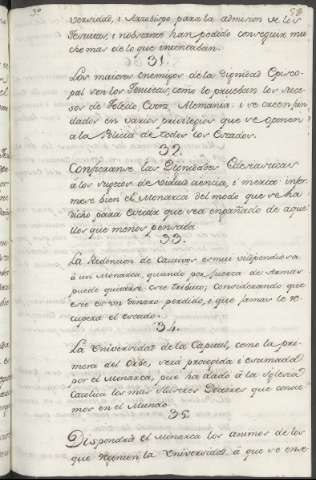 versidad, i Arzobispo para la admision de los
Jesuitas, i no obstante han podido conseguir mu
cho mas de lo que intentaban.
31.
Los maiores enemigos de la Dignidad Episco-
pal son los Jesuitas, como lo prueban los suce-
sos de Toledo Corra, Alemania: i se excon fun
dados en varios privilegios que se oponen
a la Policia de todos los Estados.
32.
Confieranse las Dignidades Eclesiasticas
a los sugetos de virtud, ciencia, i merito: infor
mese bien el Monarca del modo que se ha
dicho para evitar que sea engañado de aque
llos que menos pensará.
33.
La Redencion de Cautivos es mui dispendiosa
à un Monarca, quando por fuerza de Armas
puede quitarse este tributo; considerando que
este es un dinero perdido, i que jamas lo re
cupera el estado.
34.
La Universidad de la Capital, como la pri-
mera del Orbe, será protegida i estimada
por el Monarca, pues ha dado à la Iglesia
Catolica los mas ilustres Doctores que conoce
mos en el Mundo.
35.
Dispondrá el Monarca los animos de los
que regentan la Universidad, à que se ense